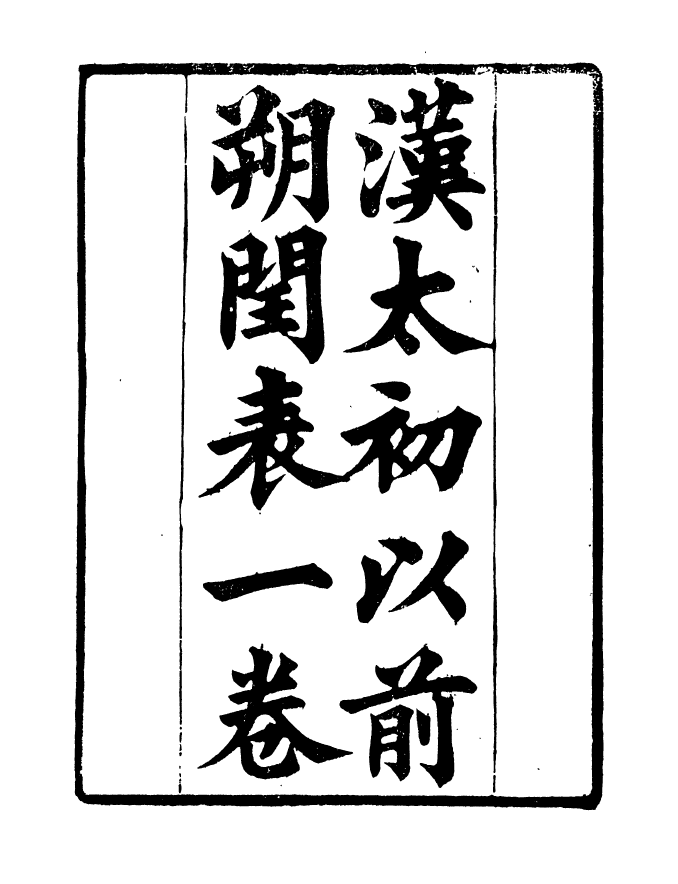 漢太初以前
朔閏表一卷